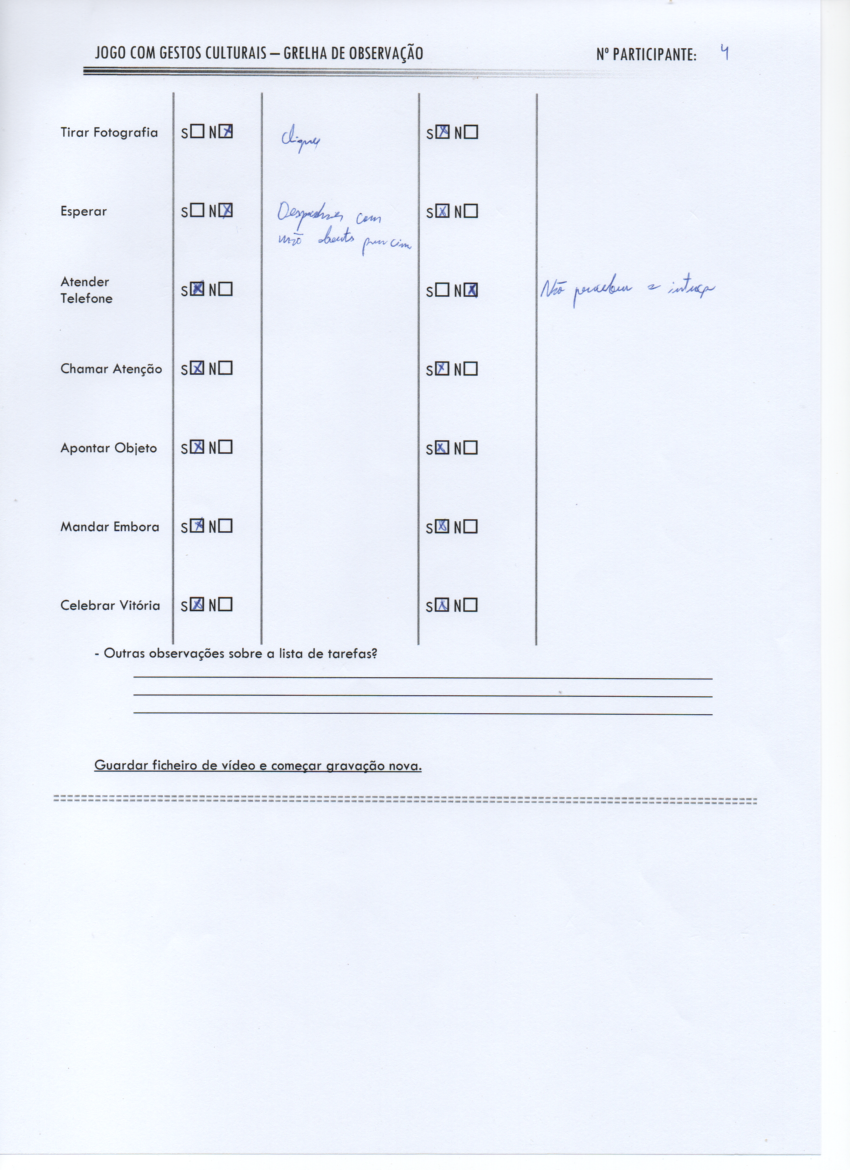 JOGO COM GESTOS CULTURAIS – GRELHA DE OBSERVAÇÃO Nº PARTICIPANTE: 4
Tirar Fotografia S☐ N☒ clique S☒ N☐
Esperar S☐ N☒ com S☒ N☐
mão
Atender
Telefone S☒ N☐ S☐ N☒ Não percebeu a
Chamar Atenção S☒ N☐ S☒ N☐
Apontar Objeto S☒ N☐ S☒ N☐
Mandar Embora S☒ N☐ S☒ N☐
Celebrar Vitória S☒ N☐ S☒ N☐
- Outras observações sobre a lista de tarefas?
Guardar ficheiro de vídeo e começar gravação nova.